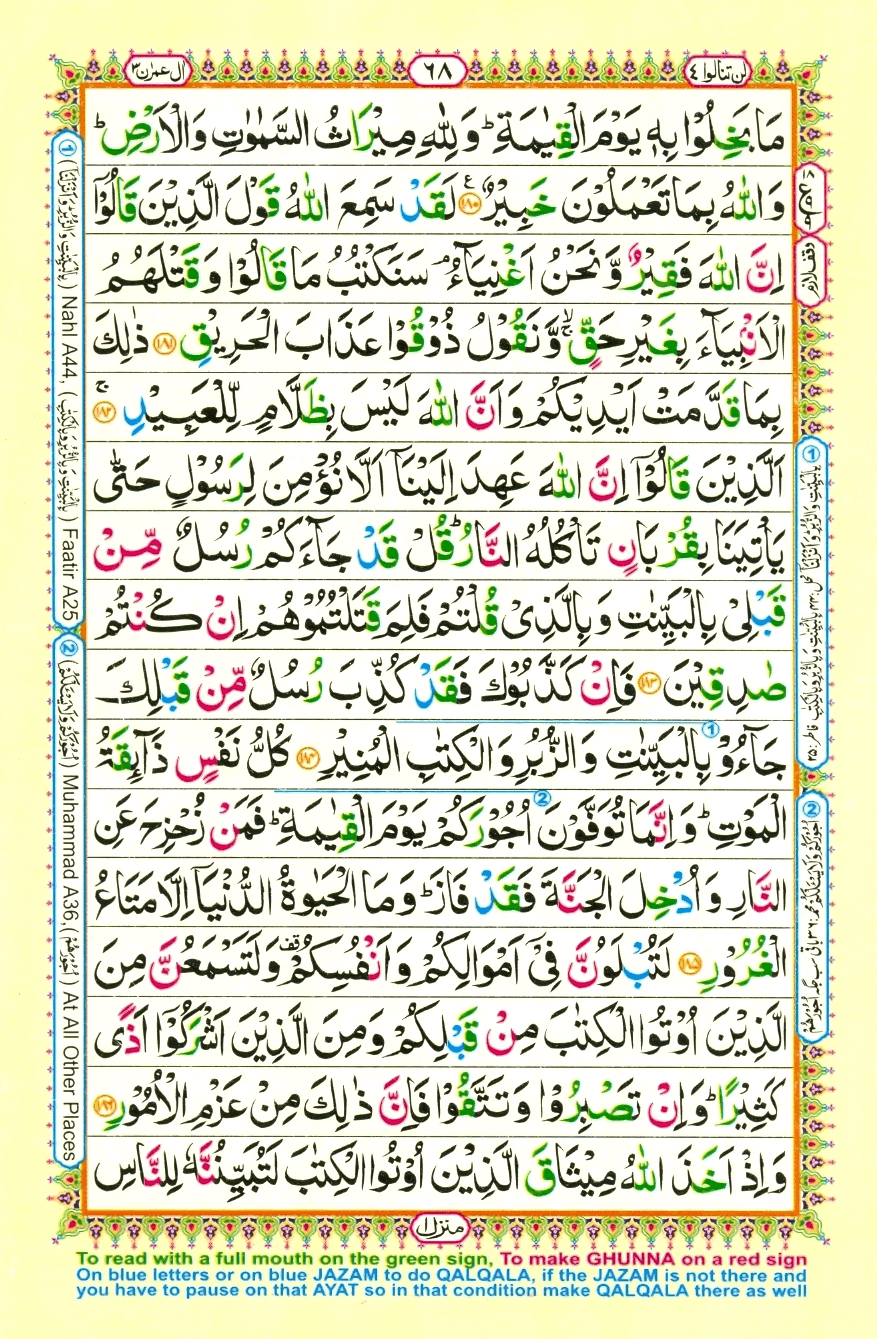 لن تنالوا ٤
٦٨
اٰل عمرٰن ٣
مَا بَخِلُوْا بِهٖ يَوْمَ الْقِيٰمَةِ ؕ وَلِلّٰهِ مِيْرَاثُ السَّمٰوٰتِ وَالْاَرْضِ ؕ
وَاللّٰهُ بِمَا تَعْمَلُوْنَ خَبِيْرٌ ۧ ﴿۱۸۰﴾ لَقَدْ سَمِعَ اللّٰهُ قَوْلَ الَّذِيْنَ قَالُوْۤا
اِنَّ اللّٰهَ فَقِيْرٌ وَّنَحْنُ اَغْنِيَآءُ ۘ سَنَكْتُبُ مَا قَالُوْا وَقَتْلَهُمُ
الْاَنْۢبِيَآءَ بِغَيْرِ حَقٍّ ۙ وَّنَقُوْلُ ذُوْقُوْا عَذَابَ الْحَرِيْقِ ﴿۱۸۱﴾ ذٰلِكَ
بِمَا قَدَّمَتْ اَيْدِيْكُمْ وَاَنَّ اللّٰهَ لَيْسَ بِظَلَّامٍ لِّلْعَبِيْدِ ۚ ﴿۱۸۲﴾
اَلَّذِيْنَ قَالُوْۤا اِنَّ اللّٰهَ عَهِدَ اِلَيْنَاۤ اَلَّا نُؤْمِنَ لِرَسُوْلٍ حَتّٰى
يَاْتِيَنَا بِقُرْبَانٍ تَاْكُلُهُ النَّارُ ؕ قُلْ قَدْ جَآءَكُمْ رُسُلٌ مِّنْ
قَبْلِىْ بِالْبَيِّنٰتِ وَبِالَّذِىْ قُلْتُمْ فَلِمَ قَتَلْتُمُوْهُمْ اِنْ كُنْتُمْ
صٰدِقِيْنَ ﴿۱۸۳﴾ فَاِنْ كَذَّبُوْكَ فَقَدْ كُذِّبَ رُسُلٌ مِّنْ قَبْلِكَ
جَآءُوْ بِالْبَيِّنٰتِ وَالزُّبُرِ وَالْكِتٰبِ الْمُنِيْرِ ﴿۱۸۴﴾ كُلُّ نَفْسٍ ذَآئِقَةُ
الْمَوْتِ ؕ وَاِنَّمَا تُوَفَّوْنَ اُجُوْرَكُمْ يَوْمَ الْقِيٰمَةِ ؕ فَمَنْ زُحْزِحَ عَنِ
النَّارِ وَاُدْخِلَ الْجَنَّةَ فَقَدْ فَازَ ؕ وَمَا الْحَيٰوةُ الدُّنْيَاۤ اِلَّا مَتَاعُ
الْغُرُوْرِ ﴿۱۸۵﴾ لَتُبْلَوُنَّ فِىْۤ اَمْوَالِكُمْ وَاَنْفُسِكُمْ ࣞ وَلَتَسْمَعُنَّ مِنَ
الَّذِيْنَ اُوْتُوا الْكِتٰبَ مِنْ قَبْلِكُمْ وَمِنَ الَّذِيْنَ اَشْرَكُوْۤا اَذًى
كَثِيْرًا ؕ وَاِنْ تَصْبِرُوْا وَتَتَّقُوْا فَاِنَّ ذٰلِكَ مِنْ عَزْمِ الْاُمُوْرِ ﴿۱۸۶﴾
وَاِذْ اَخَذَ اللّٰهُ مِيْثَاقَ الَّذِيْنَ اُوْتُوا الْكِتٰبَ لَتُبَيِّنُنَّهٗ لِلنَّاسِ
وقف لازم
① (بِالْبَيِّنٰتِ وَالزُّبُرِ وَاَنْزَلْنَا) Nahl A44, (بِالْبَيِّنٰتِ وَبِالزُّبُرِ وَبِالْكِتٰبِ) Faatir A25
② (اُجُوْرَكُمْ وَلَا يَسْئَلْكُمْ) Muhammad A36, (اُجُوْرَهُمْ) At All Other Places
منزل ١
To read with a full mouth on the green sign, To make GHUNNA on a red sign
On blue letters or on blue JAZAM to do QALQALA, if the JAZAM is not there and
you have to pause on that AYAT so in that condition make QALQALA there as well